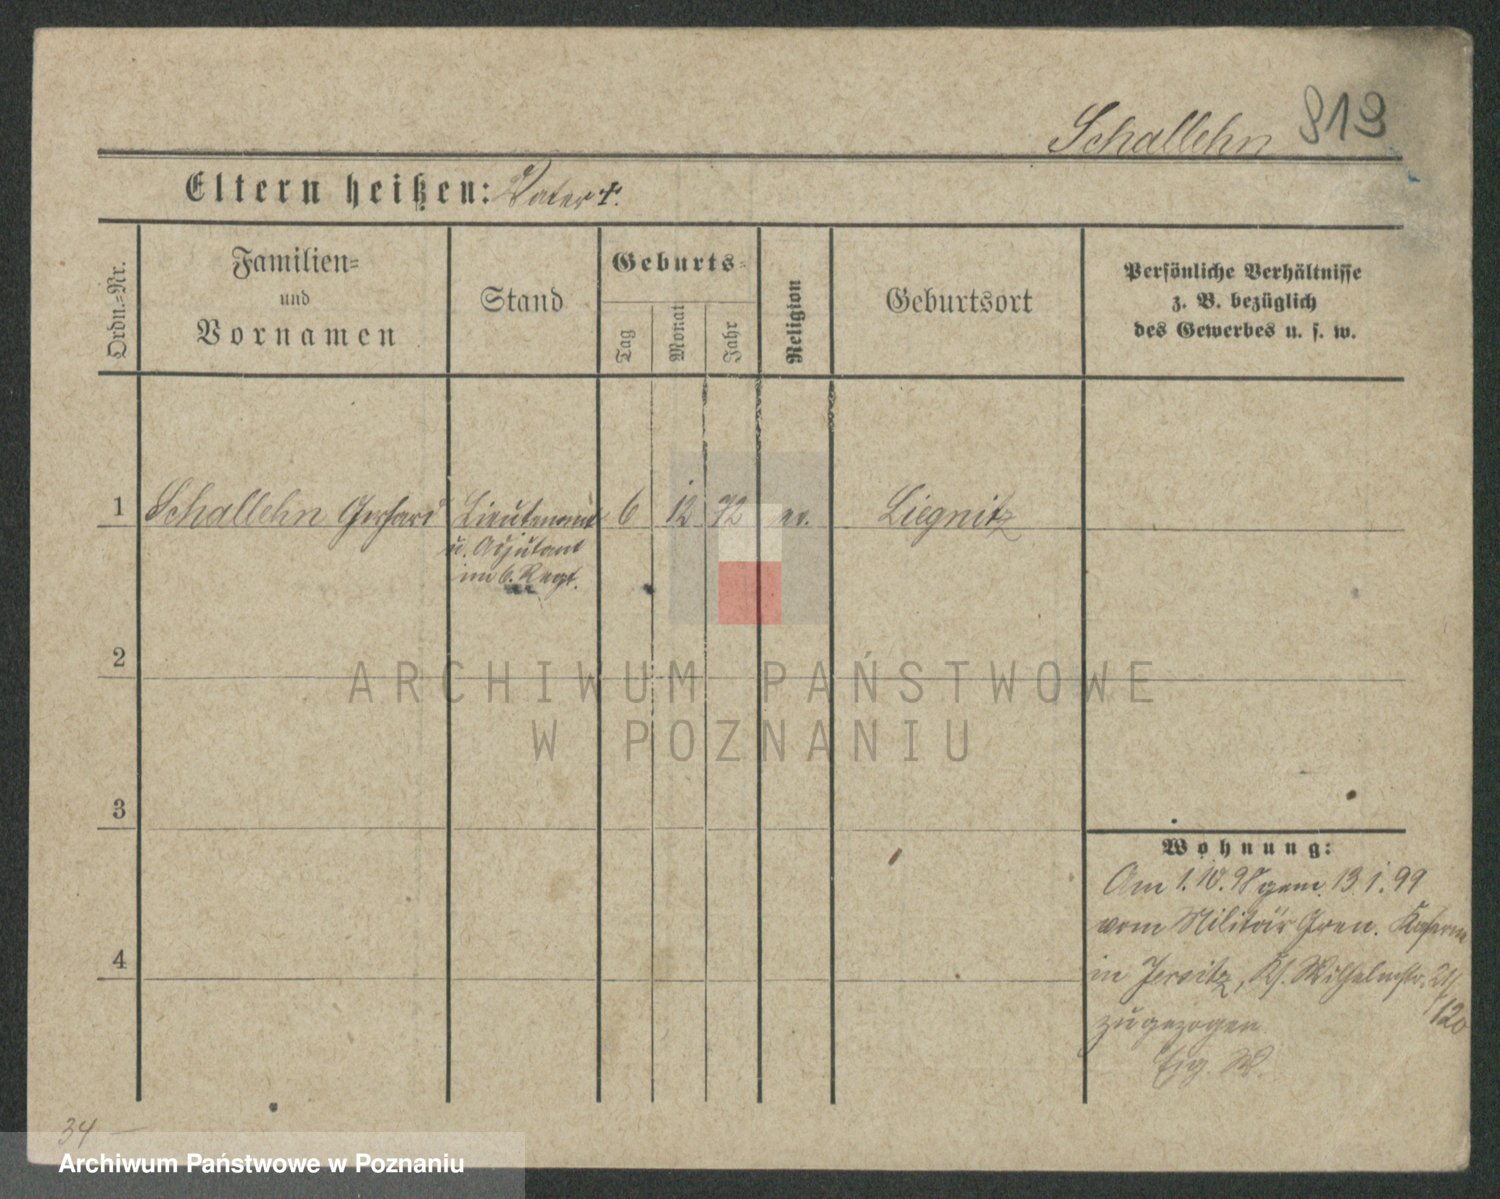 Schallehn 819
Eltern heißen: Vater †.
Ordn.=Nr.
Familien=
und
Vornamen
Stand
Geburts=
Tag
Monat
Jahr
Religion
Geburtsort
Persönliche Verhältnisse
z. B. bezüglich
des Gewerbes u. s. w.
1 Schallehn Gerhard Lieutenant 6 12 72 ev. Liegnitz
u. Adjutant
im 6. Regt.
2
ARCHIWUM PAŃSTWOWE
W POZNANIU
3
Wohnung:
Am 1.10.98 gem. 13.1.99
vom Militär Gren. Kaserne
4
in Jersitz, Kl. Wilhelmstr. 21/
zugezogen 120
Eig. W.
34
Archiwum Państwowe w Poznaniu